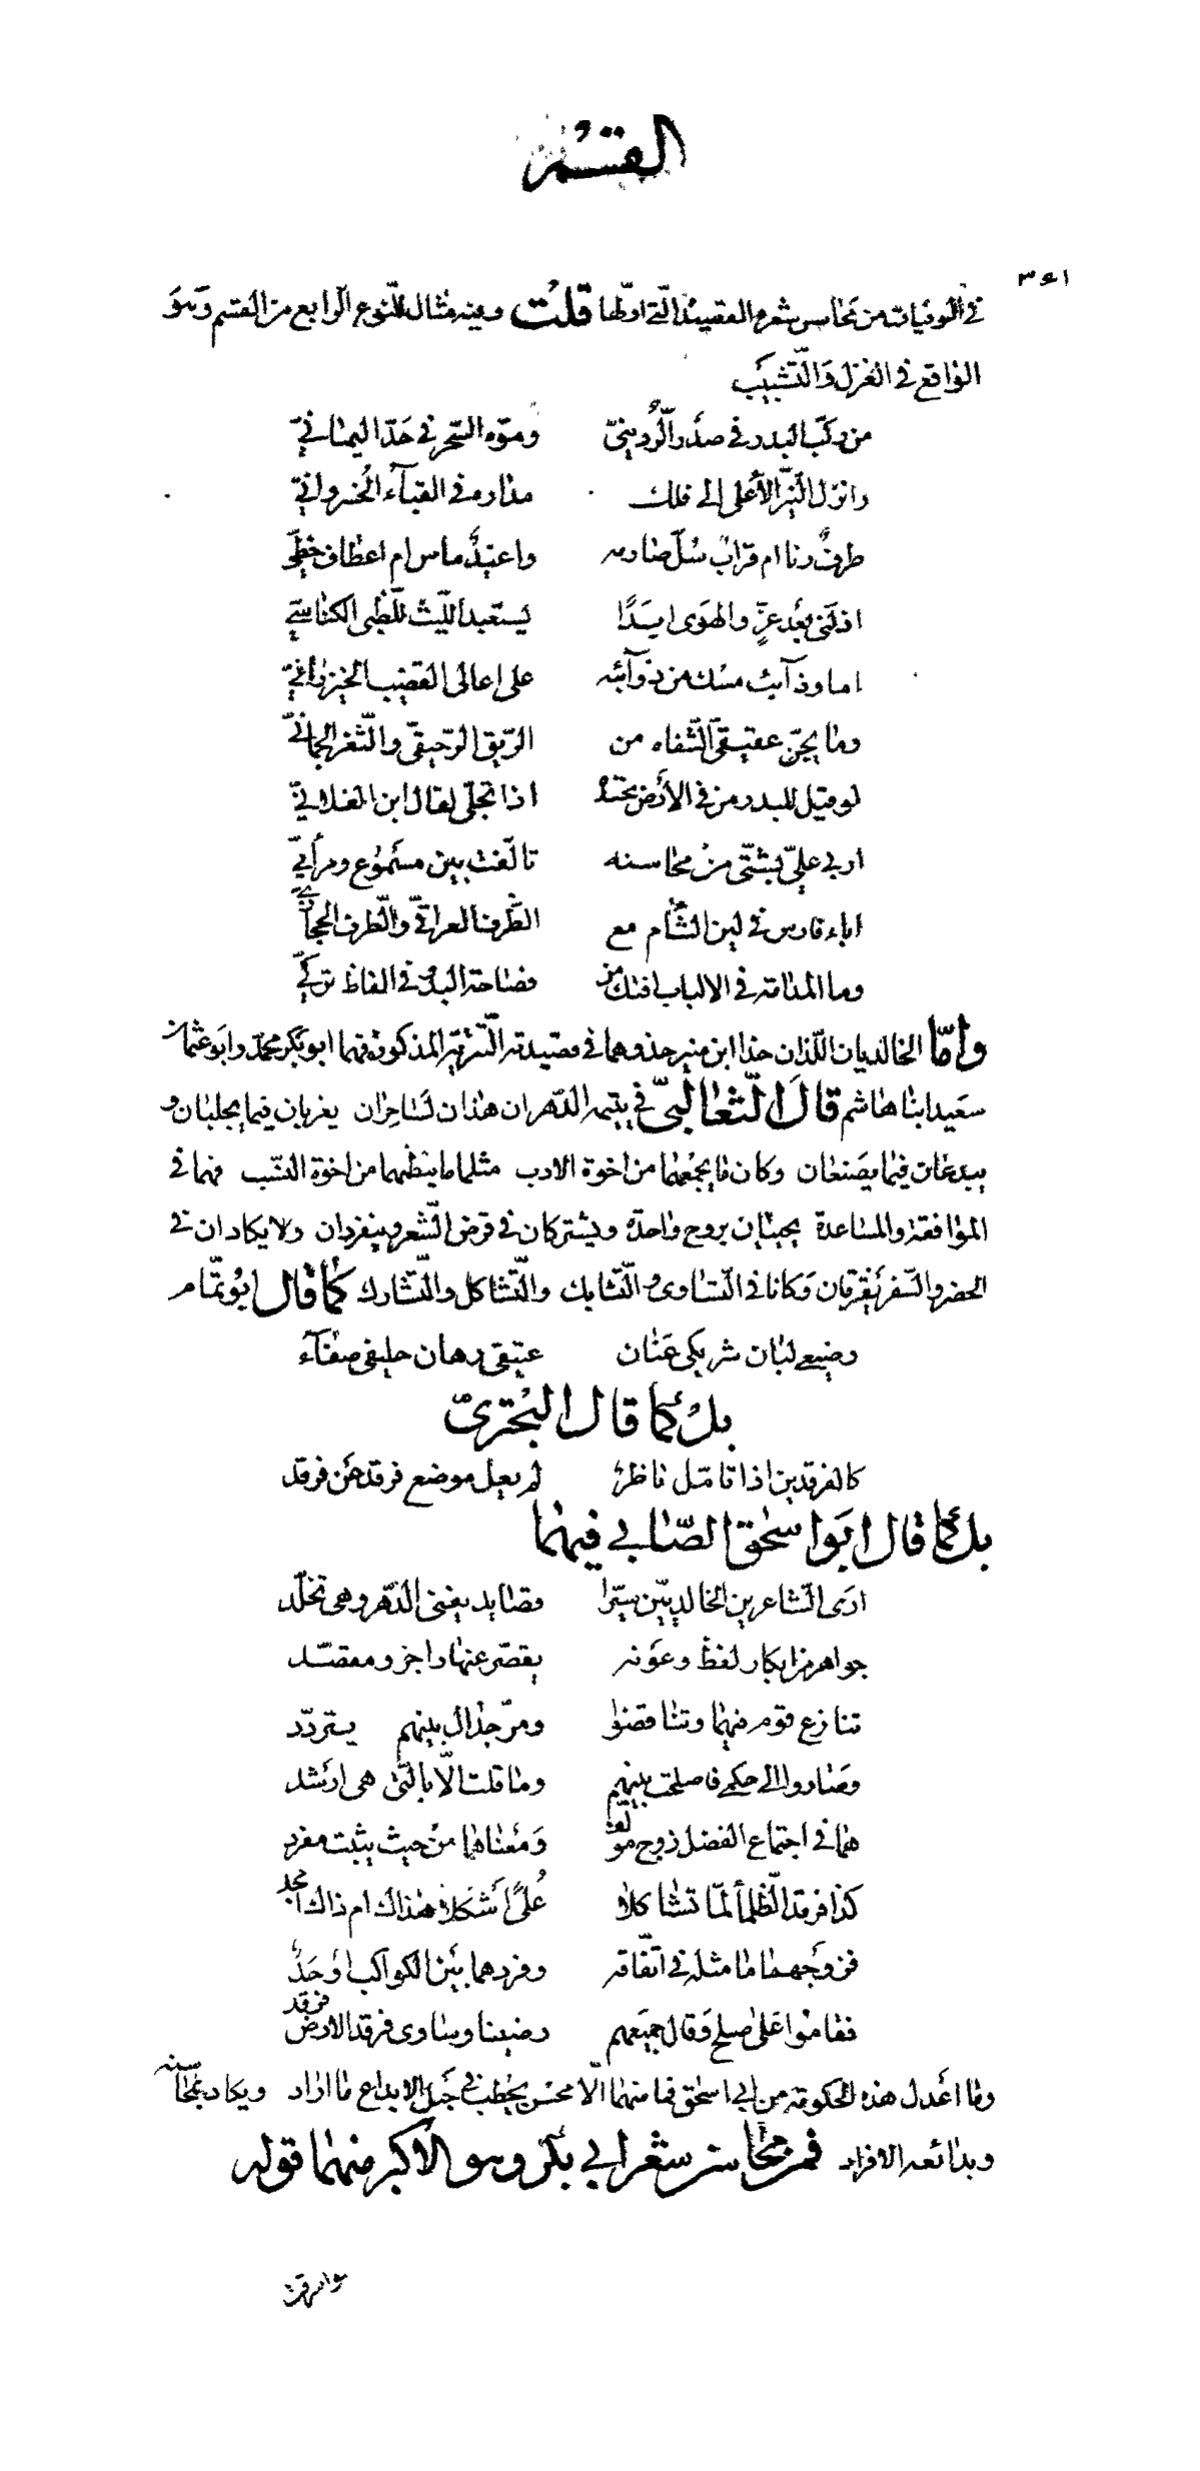 القسم
٣٤١
في الوفيات من محاسن شعره القصيدة الّتي اوّلها قلت وفيه مثال للنّوع الرابع من القسم وهو
الواقع في الغزل والتّشبيب
من ركّب البدر في صدر الرّدينيّ ومَوّه السّحر في حَدّ اليمانيّ
وانزل النيّر الأعلى الى فلك مداره في القبآء الخسروانيّ
طرفٌ رنا ام قرابٌ سُلّ صارمه واغيدٌ ماس ام اعطاف خطّيّ
اذلّني بعد عزٍّ والهوى ابدًا يستعبد اللّيث للظّبى الكناسيّ
اما وذآئب مسك من ذوآئبه على اعالى القضيب الخيزرانيّ
وما يجنّ عقيقىّ الشّفاه من الرّيق الرّحيقىّ والثّغر الجمانيّ
لو قيل للبدر من في الأرض تحسده اذا تجلّى لقال ابن الفلانيّ
اربى علىّ بشتّى من محاسنه تالّفت بين مسموع ومرأيّ
اباء فارس في لين الشّأم مع الظّرف العراقيّ والنّطق الحجازيّ
وما المدامة في الالباب افتك من فصاحة البدو في الفاظ تركيّ
وامّا الخالديان اللّذان حذا ابن منير حذوهما في قصيدته التّتريّة المذكورة فهما ابو بكر محمّد وابو عثمان
سعيد ابنا هاشم قال الثّعالبيّ في يتيمة الدّهر ان هذان لساحران يغربان فيما يجلبان و
يبدعان فيما يصنعان وكان ما يجمعهما من اخوة الادب مثلما ما ينظمهما من اخوة النسب فهما في
الموافقة والمساعدة يحييان بروح واحدة ويشتركان في قرض الشّعر وينفردان ولا يكادان في
الحضر والسّفر يفترقان وكانا في التساوى والتّشابك والتّشاكل والتّشارك كما قال ابو تمّام
رضيعى لبان شريكى عنان عتيقى رهان حليفى صفآء
بل كما قال البحترىّ
كالفرقدين اذا تامّل ناظر لم يعل موضع فرقد عن فرقد
بل كما قال ابو اسحق الصّابي فيهما
ارى الشاعرين الخالديّين سيّرا قصايد يفنى الدّهر وهى تخلّد
جواهر من ابكار لفظ وعونه يقصّر عنها راجز ومقصّد
تنازع قوم فيهما وتناقضوا ومرّ جدال بينهم يتردّد
وصاروا الى حكمى فاصلحت بينهم وما قلت الّا بالّتى هى ارشد
هما في اجتماع الفضل زوج مؤلّف ومعناهما من حيث يثبت مفرد
كذا فرقد الظّلمآ لمّا تشاكلا عُلىً أشكلا هذاك ام ذاك امجد
فزوجهما ما مثله في اتّفاقه وفردهما بين الكواكب اوحدُ
فقاموا على صلح وقال جميعهم رضينا وساوى فرقد الارض فرقد
وما أعدل هذه الحكومة من ابي اسحق فما منهما الّا محسن يحطب في حبل الابداع ما اراد ويكاد بمحاسنه
وبدائعه الافراد فمن محاسن شعر ابي بكر وهو الاكبر منهما قوله